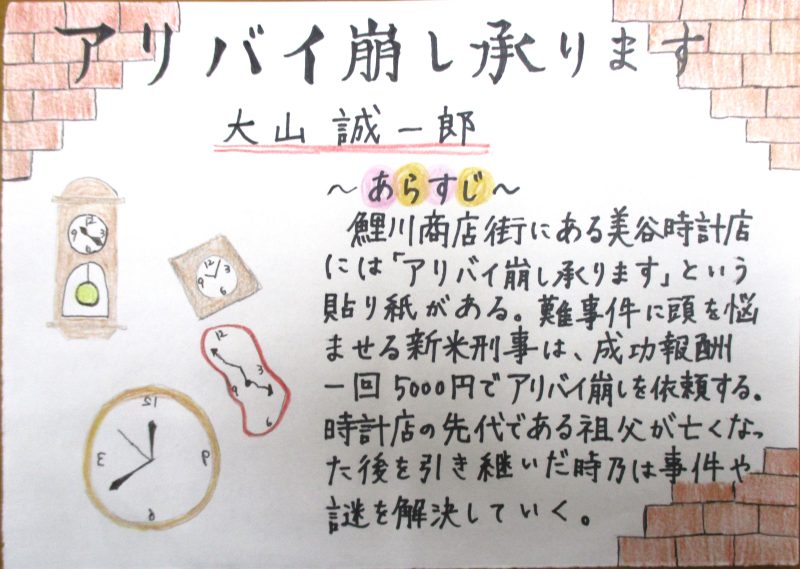 アリバイ崩し承ります
大山誠一郎
～あらすじ～
鯉川商店街にある美谷時計店
には「アリバイ崩し承ります」という
貼り紙がある。難事件に頭を悩
ませる新米刑事は、成功報酬
一回5000円でアリバイ崩しを依頼する。
時計店の先代である祖父が亡くなっ
た後を引き継いだ時乃は事件や
謎を解決していく。
12
3
6
9
12
3
6
9
12
3
6
9
12
3
6
9